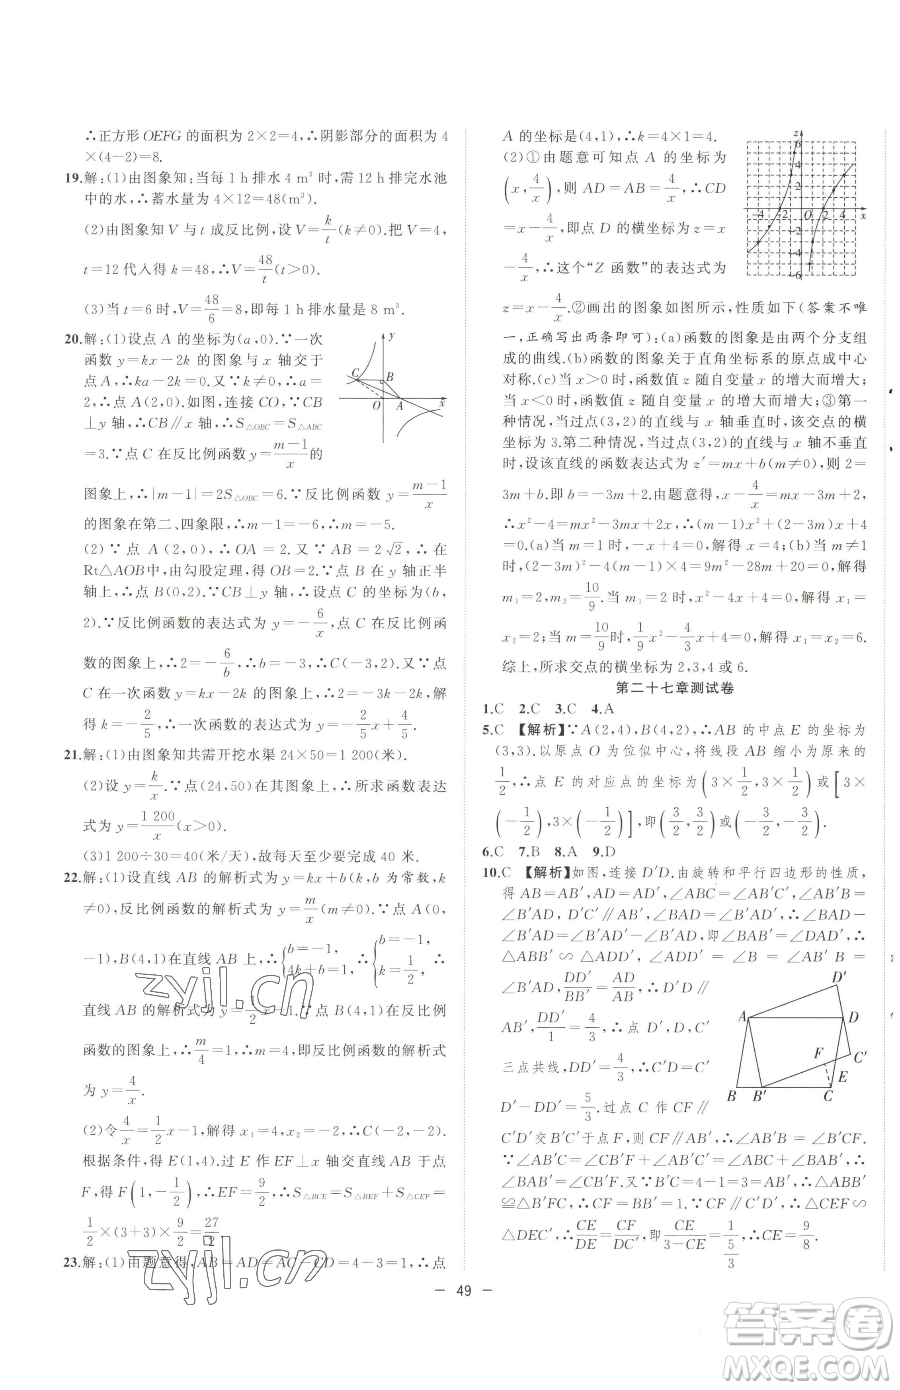 ∴正方形 OEFG 的面积为 2×2=4,∴阴影部分的面积为 4
×(4-2)=8.
19.解:(1)由图象知:当每 1 h 排水 4 m³ 时,需 12 h 排完水池
中的水,∴蓄水量为 4×12=48(m³).
(2)由图象知 V 与 t 成反比例,设 V=k/t(k≠0).把 V=4,
t=12 代入得 k=48,∴V=48/t(t>0).
(3)当 t=6 时,V=48/6=8,即每 1 h 排水量是 8 m³.
20.解:(1)设点 A 的坐标为(a,0).∵一次
函数 y=kx-2k 的图象与 x 轴交于
点 A,∴ka-2k=0.又∵k≠0,∴a=
2,∴点 A(2,0).如图,连接 CO,∵CB
⊥y 轴,∴CB∥x 轴,∴S△OBC=S△ABC
=3.∵点 C 在反比例函数 y=(m-1)/x 的
图象上,∴|m-1|=2S△OBC=6.∵反比例函数 y=(m-1)/x
的图象在第二、四象限,∴m-1=-6,∴m=-5.
(2)∵点 A(2,0),∴OA=2.又∵AB=2√2,∴在
Rt△AOB中,由勾股定理,得 OB=2.∵点 B 在 y 轴正半
轴上,∴点 B(0,2).∵CB⊥y 轴,∴设点 C 的坐标为(b,
2).∵反比例函数的表达式为 y=-6/x,且点 C 在反比例函
数的图象上,∴2=-6/b,∴b=-3,∴点 C(-3,2).∵点
C 在一次函数 y=kx-2k 的图象上,∴2=-3k-2k,解
得 k=-2/5,∴一次函数的表达式为 y=-2/5x+4/5.
21.解:(1)由图象知共需开挖水渠 24×50=1 200(米).
(2)设 y=k/x.∵点(24,50)在图象上,∴所求函数表达
式为 y=1 200/x(x>0).
(3)1 200÷30=40(米/天),故每天至少要完成 40 米.
22.解:(1)设直线 AB 的解析式为 y=kx+b(k,b 为常数,k
≠0),反比例函数的解析式为 y=m/x(m≠0).∵点 A(0,
-1),B(4,1)在直线 AB 上,∴{b=-1,4k+b=1,∴{b=-1,k=1/2,∴
直线 AB 的解析式为 y=1/2x-1.∵点 B(4,1)在反比例
函数的图象上,∴m/4=1,∴m=4,即反比例函数的解析式
为 y=4/x.
(2)令4/x=1/2x-1,解得 x₁=4,x₂=-2,∴点 C(-2,-2).
根据条件,得 E(1,4).过 E 作 EF⊥x 轴交直线 AB 于点
F,得 F(1,-1/2),∴EF=9/2,∴S△BCE=S△BEF+S△CEF=
1/2×(3+3)×9/2=27/2.
23.解:(1)由题意得,AB=AD=AC=AE=4-3=1,∴点
A 的坐标是(4,1),∴k=4×1=4.
(2)①由题意可知点 A 的坐标为
(x,4/x),则 AD=AB=4/x,∴CD=x
-4/x,∴这个“Z 函数”的表达式为
z=x-4/x.②画出的图象如图所示,性质如下(答案不唯
一,正确写出两条即可):(a)函数的图象是由两个分支组
成的曲线.(b)函数的图象关于直角坐标系的原点成中心
对称.(c)当 x>0 时,函数值 z 随自变量 x 的增大而增大;
当 x<0 时,函数值 z 随自变量 x 的增大而增大;③第一
种情况,当过点(3,2)的直线与 x 轴垂直时,该交点的横
坐标为 3.第二种情况,当过点(3,2)的直线与 x 轴不垂直
时,设该直线的函数表达式为 z′=mx+b(m≠0),则 2=
3m+b.即 b=-3m+2,∴x-4/x=mx-3m+2,
∴x²-4=mx²-3mx+2x,∴(m-1)x²-(3m-2)x+4
=0.(a)当 m=1 时,-x+4=0,解得 x=4;(b)当 m≠1
时,(2-3m)²-4(m-1)×4=9m²-28m+20=0,解得
m₁=2,m₂=10/9.当 m=2 时,x²-4x+4=0,解得 x₁=
x₂=2;当 m=10/9时,x²-12x+36=0,解得 x₁=x₂=6.
综上,所求交点的横坐标为 2,3,4 或 6.
第二十七章测试卷
1.C 2.C 3.C 4.A
5.C 【解析】∵A(2,4),B(4,2),∴AB 的中点 E 的坐标为
(3,3).以原点 O 为位似中心,将线段 AB 缩小为原来的
1/2,∴点 E 的对应点的坐标为(3×1/2,3×1/2)或[3×
(-1/2),3×(-1/2)],即(3/2,3/2)或(-3/2,-3/2).
6.C 7.B 8.A 9.D
10.C 【解析】如图,连接 D′D.由旋转和平行四边形的性质,
得 AB=AB′,AD=AD′,∠ABC=∠AB′C′,∠AB′B=
∠B′AD,D′C′∥AB′,∠BAD=∠B′AD′,∴∠BAD-
∠B′AD=∠B′AD′-∠B′AD,即∠BAB′=∠DAD′,∴
△ABB′∽△ADD′,∠AB′B=∠AD′D=∠B′AD,∴∠B
=∠B′AD,∴DD′/BB′=AD/AB,∴DD′∥
AB′,DD′/1=4/3,∴点 D′,D,C′
三点共线,DD′=4/3,∴C′D=C′
D′-DD′=5/3.过点 C 作 CF∥
C′D′交 B′C′于点 F,∴CF∥AB′,∴∠AB′F=∠B′FC.
∵∠ABC=∠CB′F+∠AB′C′=∠BAB′+∠AB′C′,∴
∠CB′F=∠BAB′.又∵B′C=AD=4-1=3=AB,∴△ABB′
≌△B′FC,∴CF=BB′=1.∵CF∥C′D′,∴△CEF∽
△DEC′,∴CE/DE=CF/DC′,即CE/(3-CE)=1/(5/3),∴CE=9/8.
z
6
4
2
-4
-2
O
2
4
x
-2
-4
-6
y
C
B
O
A
x
D′
A
D
F
C′
E
B
B′
C
— 49 —
zyjl.cn
zyjl.cn
答案圈
MXQE.COM